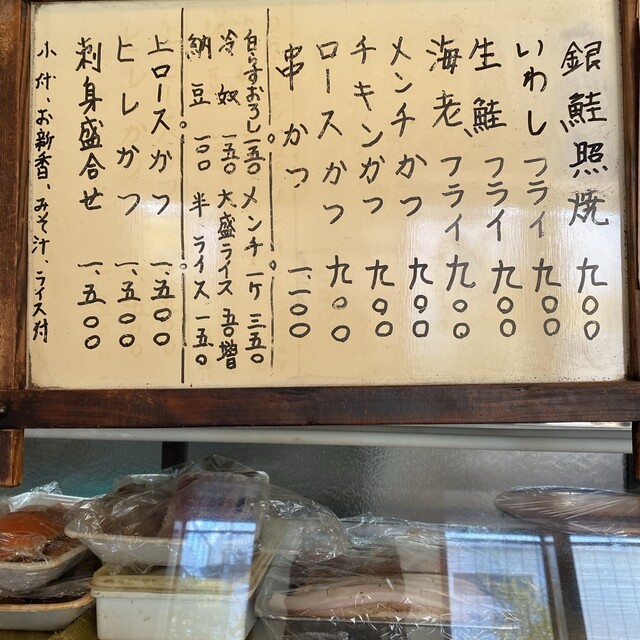 銀鮭照焼 九〇〇
いわしフライ 九〇〇
生鮭フライ 九〇〇
海老フライ 九〇〇
メンチかつ 九〇〇
チキンかつ 九〇〇
ロースかつ 九〇〇
串かつ 一、一〇〇
白らすおろし 一五〇 メンチ一ケ 三五〇
冷奴 一五〇 大盛ライス 五〇増
納豆 一〇〇 半ライス 一五〇
上ロースかつ 一、五〇〇
ヒレかつ 一、五〇〇
刺身盛合せ 一、五〇〇
小付、お新香、みそ汁、ライス付